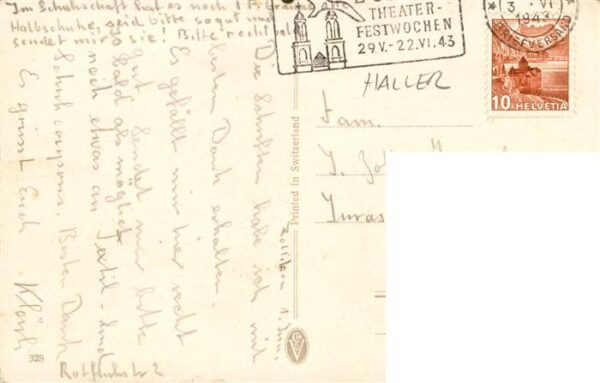 Im Schuhschaft hat es noch 1 P. graue alte
Halbschuhe, seid bitte so gut und
sendet mir sie! Bitte
THEATER-
FESTWOCHEN
29.V.-22.VI.43
3. VI
1943
BRIEFVERSAND
10 HELVETIA
HALLER
Fam.
J.
Juras
Printed in Switzerland
1. Juni
Die Schriften habe ich mit
bestem Dank erhalten.
Es gefällt mir hier recht
gut. Sendet mir bitte
so bald als möglich
noch etwas an Textil- und
Schuhcoupons. Besten Dank
Es grüsst Euch
328
2